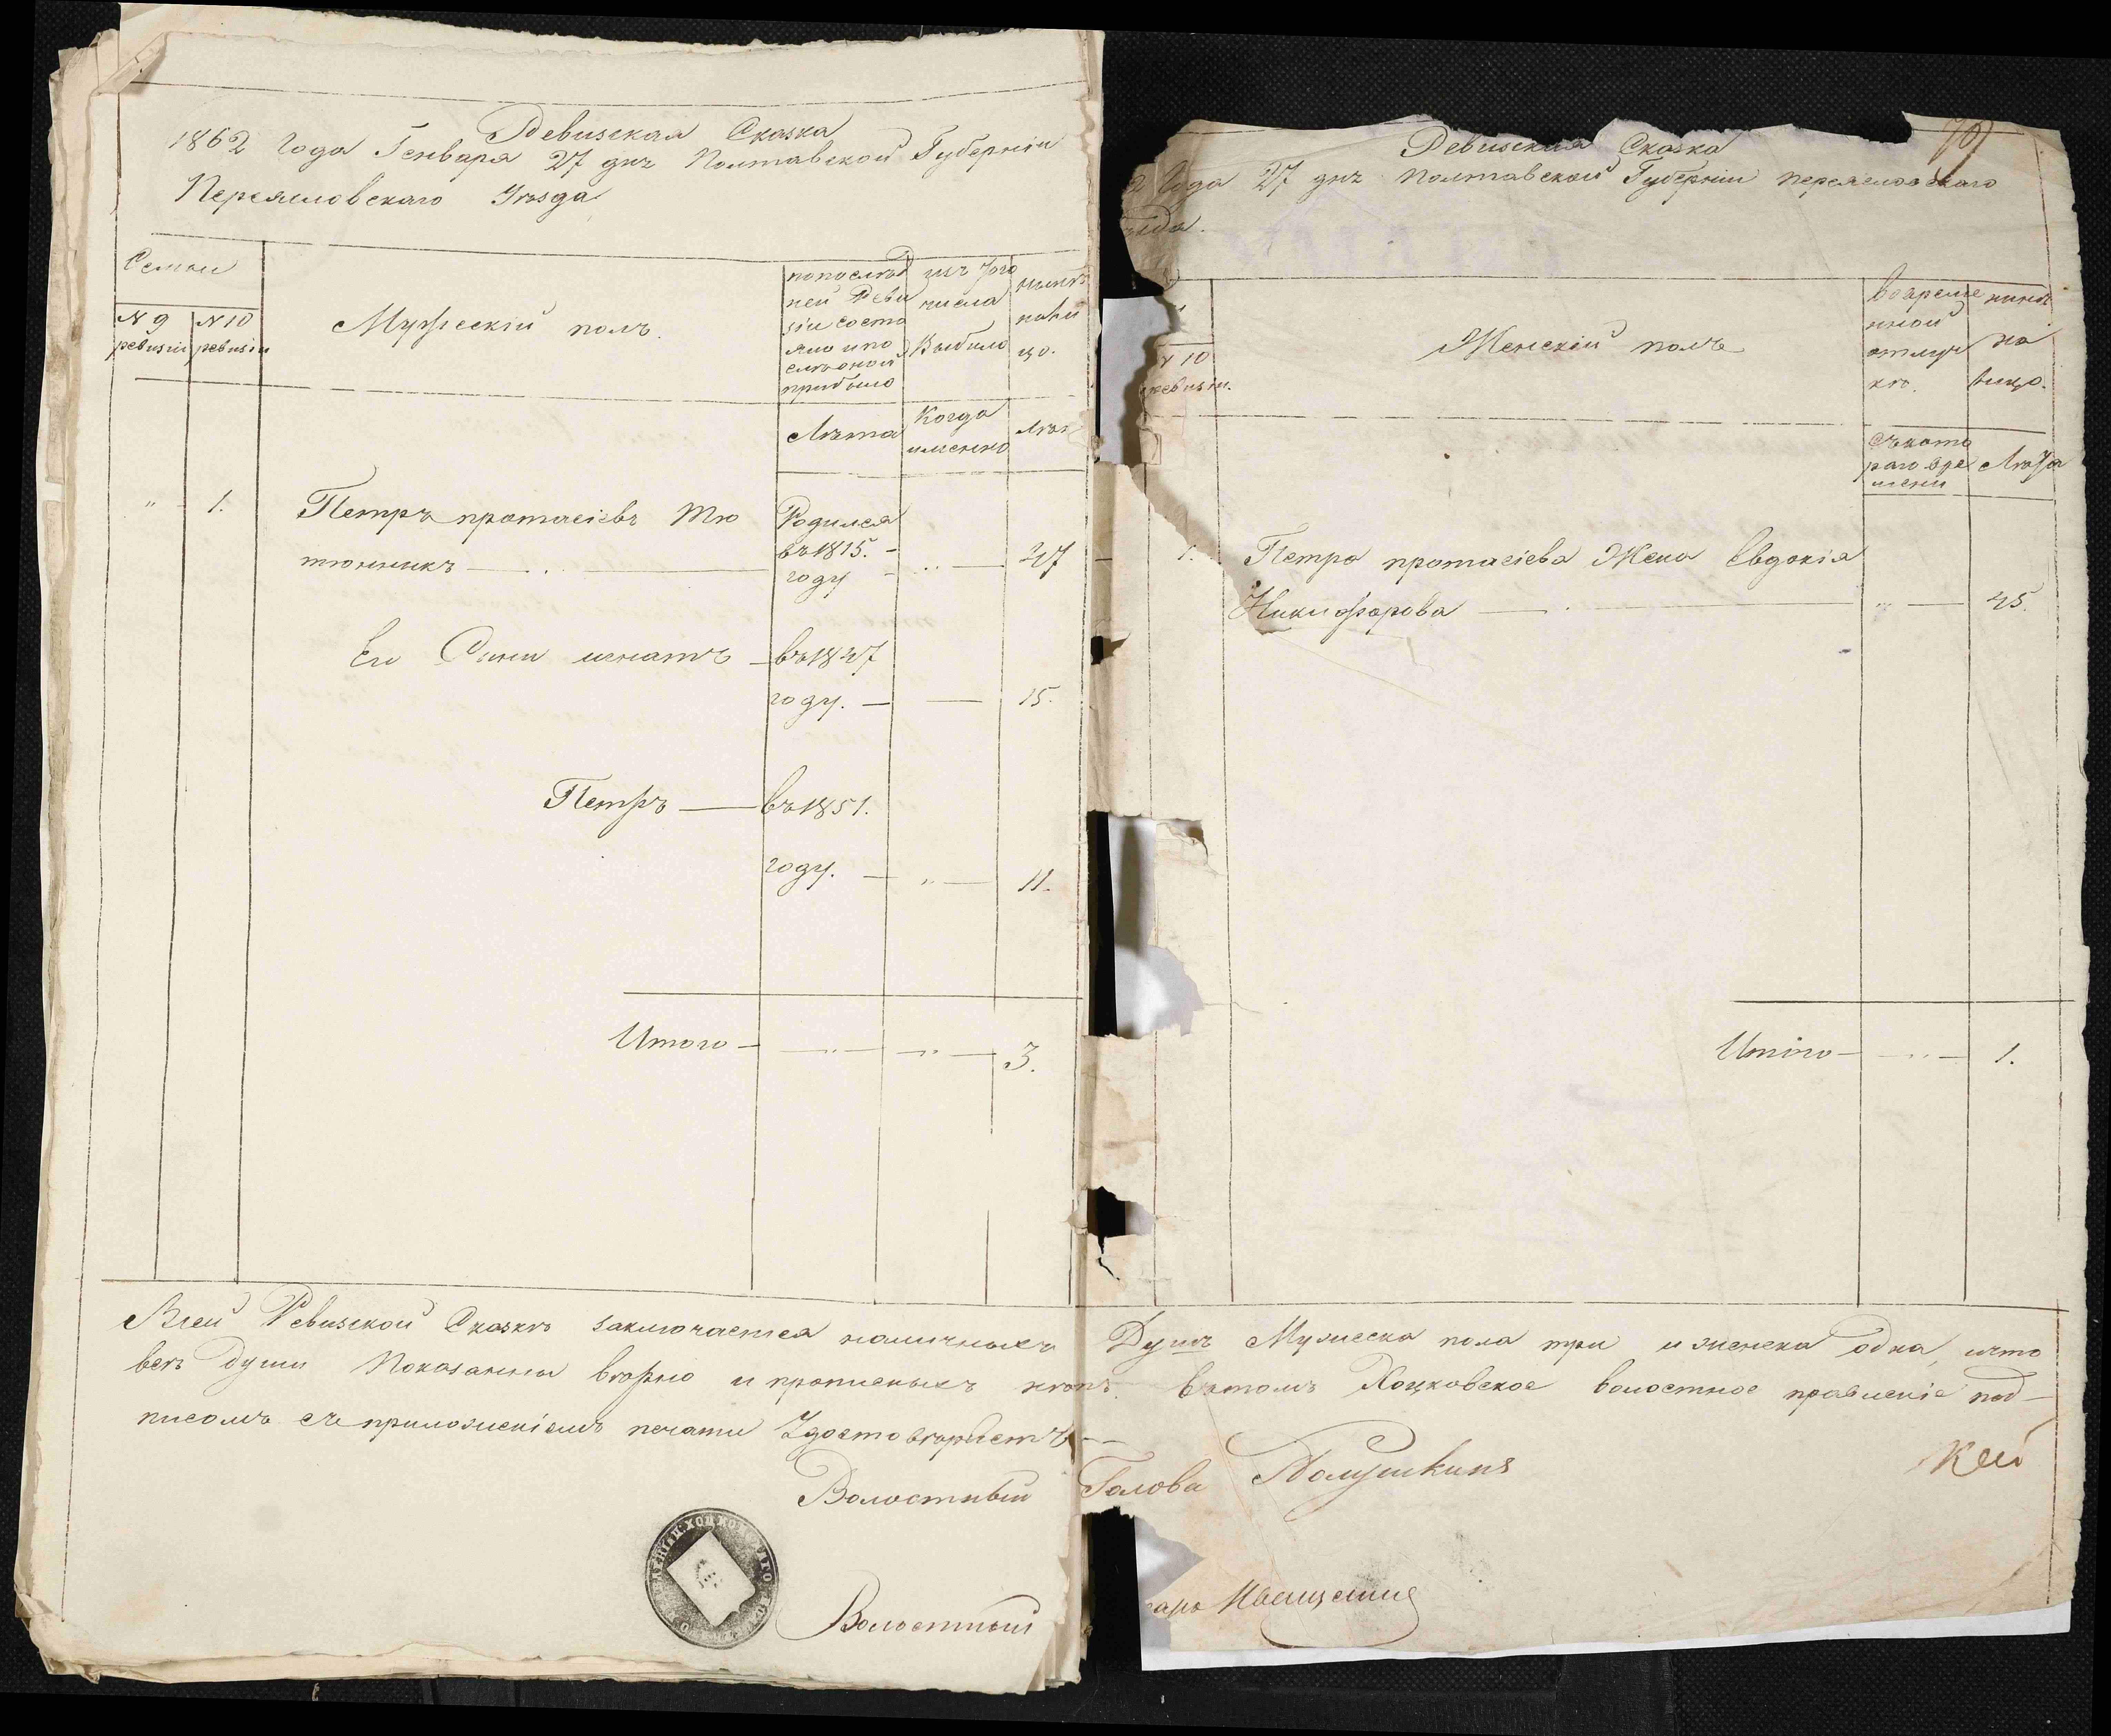 Ревизская Сказка
1862 Года Генваря 27 дня Полтавской Губерніи
Переяславскаго Уѣзда
Семьи
№ 9 ревизіи
№ 10 ревизіи
Мужескій полъ.
по послѣд
ней Реви
зіи состо
яло и по
слѣ оной
прибыло
изъ того
числа
Выбыло
нынѣ
на ли
цо.
Лѣта
Когда
именно
Лѣт
" 1. Петръ протасіевъ Тю
тюнникъ
Родился
въ 1815.
году 47
Его Сыни игнатъ въ 1847
году. 15.
Петръ въ 1851.
году. " 11.
Итого " " 3.
Ревизская Сказка
Года 27 дня Полтавской Губерніи переяславскаго
№ 10
ревизіи.
Женскій полъ
во време
нной
отлуч
кѣ.
нынѣ
на
лицо.
Съ кото
раго вре
мени
Лѣта
1. Петра протасіева Жена Евдокія
Никифорова " 45.
Итого " 1.
Всей Ревизской Сказкѣ заключается наличныхъ Душъ Мужеска пола три и женска одна, и что
всѣ души Показанны вѣрно и прописныхъ нѣтъ. въ томъ Хоцковское волостное правленіе под-
писомъ съ приложеніемъ печати Удостовѣряетъ
Волостный Голова
Волостный